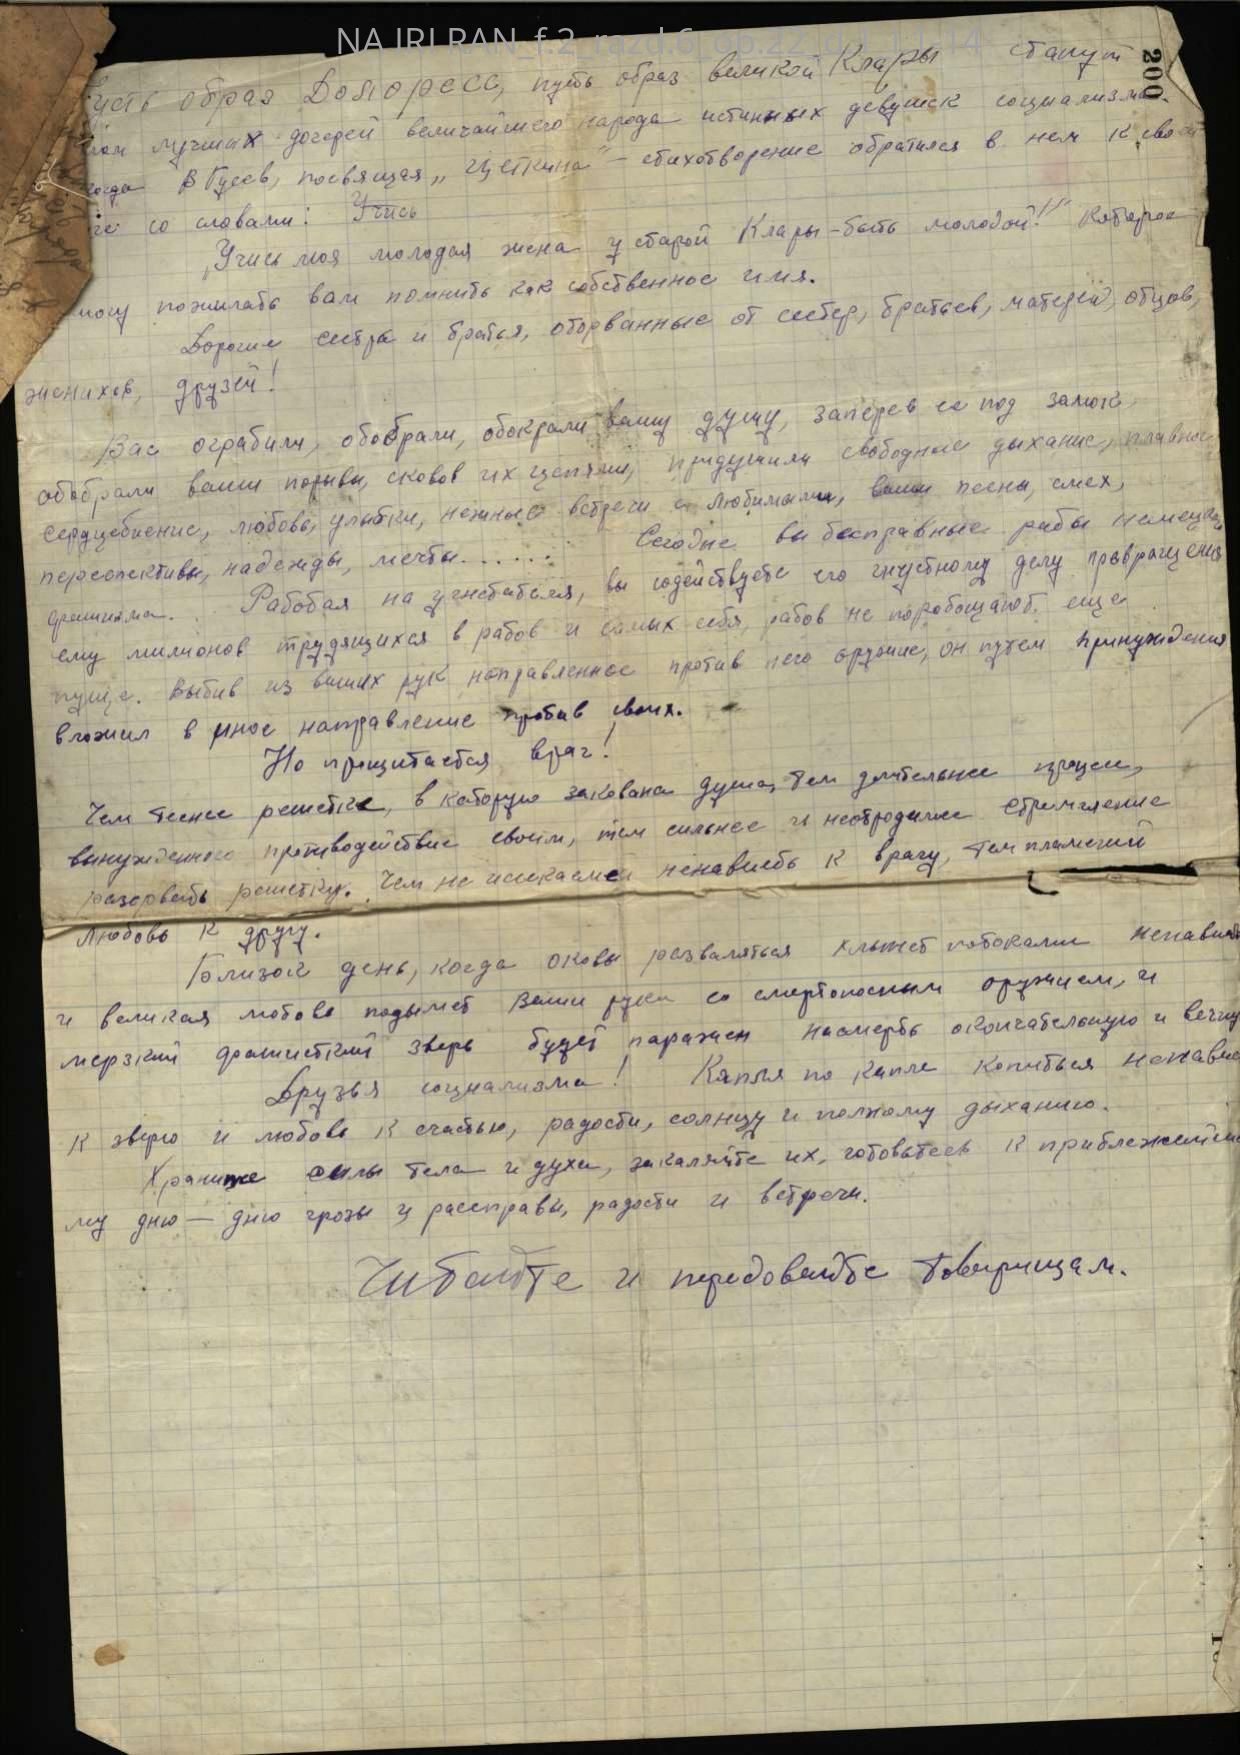 NA IRI RAN_f.2_razd.6_op.22_d.1_11-14
200
усть образ Долоресс, пусть образ великой Клары станут
лучших дочерей величайшего народа истинных девушек социализма.
когда В Гусев, посвящая „Цеткина" – стихотворение обратился в нем к своей
со словами: Учись
„Учись моя молодая жена у старой Клары – быть молодой!" Которое
могу пожелать вам помнить как собственное имя.
Дорогие сестры и братья, оторванные от сестер, братьев, матерей, отцов,
женихов, друзей!
Вас ограбили, обобрали, обокрали вашу душу, заперев ее под замок,
обобрали ваши порывы, сковов их цепями, придушили свободное дыхание, плавное
сердцебиение, любовь, улыбки, нежные встречи с любимыми, ваши песни, смех,
перспективы, надежды, мечты....... Сегодне вы бесправные рабы немецкого
фашизма. Работая на угнетателя, вы содействуете его гнустному делу превращения
ему милионов трудящихся в рабов и самых себя, рабов не поробощают еще
пуще. Выбив из ваших рук направленное против него оружие, он путем принуждения
вложил в иное направление против своих.
Но прощитается враг!
Чем теснее решетка, в которую закована душа, тем длительнее процесс,
вынужденного противодействие своим, тем сильнее и необходимее стремление
разорвать решетку. Чем не исекаемей ненависть к врагу, тем пламенней
любовь к другу.
Близок день, когда оковы разваляться хлынет потоками ненависть
и великая любовь подымет Ваши руки со смертоносным оружием, и
мерзкий фашисткий зверь будет паражен насмерть окончательную и вечную
Друзья социализма! Капля по капле копиться ненависть
к зверю и любовь к счастью, радости, солнцу и полному дыханию.
Храните силы тела и духа, закаляйте их, готовьтесь к приближающе
му дню – дню грозы и расправы, радости и встречи.
Читайте и передовайте товарищам.